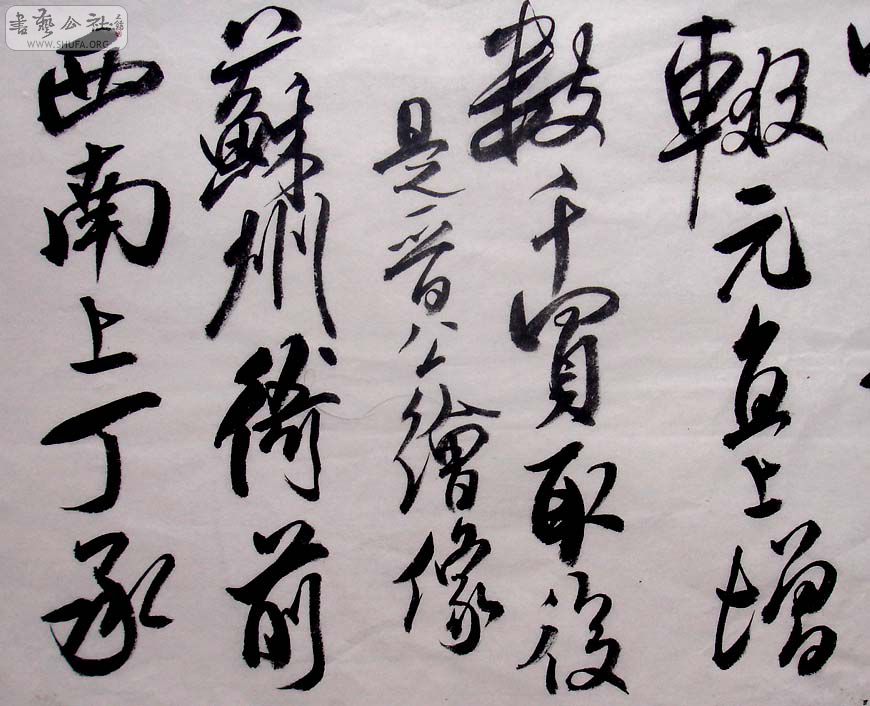 書藝公社
WWW.SHUFA.ORG
輟元直上增
數千買取後
是晉公繪像
蘇州衙前
西南上丁承